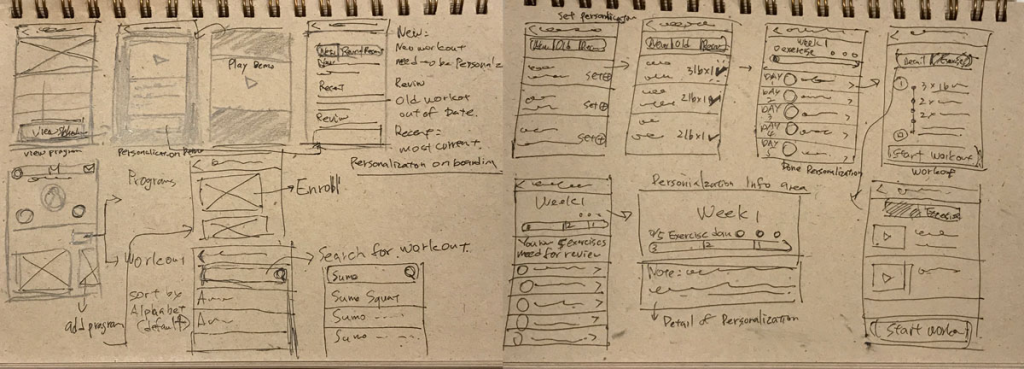 New:
New workout
need to be Personaliz
Play Demo
Recent
Review
Review
Old workout
out of Date.
Recent:
most current.
View program
Personalization Demo
Personalization onboarding
Programs
Enroll
Workout
Search for workout.
Sumo
Sumo Squat
Sumo
Sumo
Sort by
Alphabet
(default)
add program
Set Personalization
New Old Recent
set
set
set
New Old Recent
3lbx1
2lbx1
2lbx1
Week 1
0 exercise
DAY
DAY
DAY
DAY
Done Personalization
Start workout
Workout
Week 1
Your 5 exercises
need for review
Personalization Info area
Week 1
0/5 Exercise done
3 2 1
Note:
Detail of Personalization
Exercise
Start workout